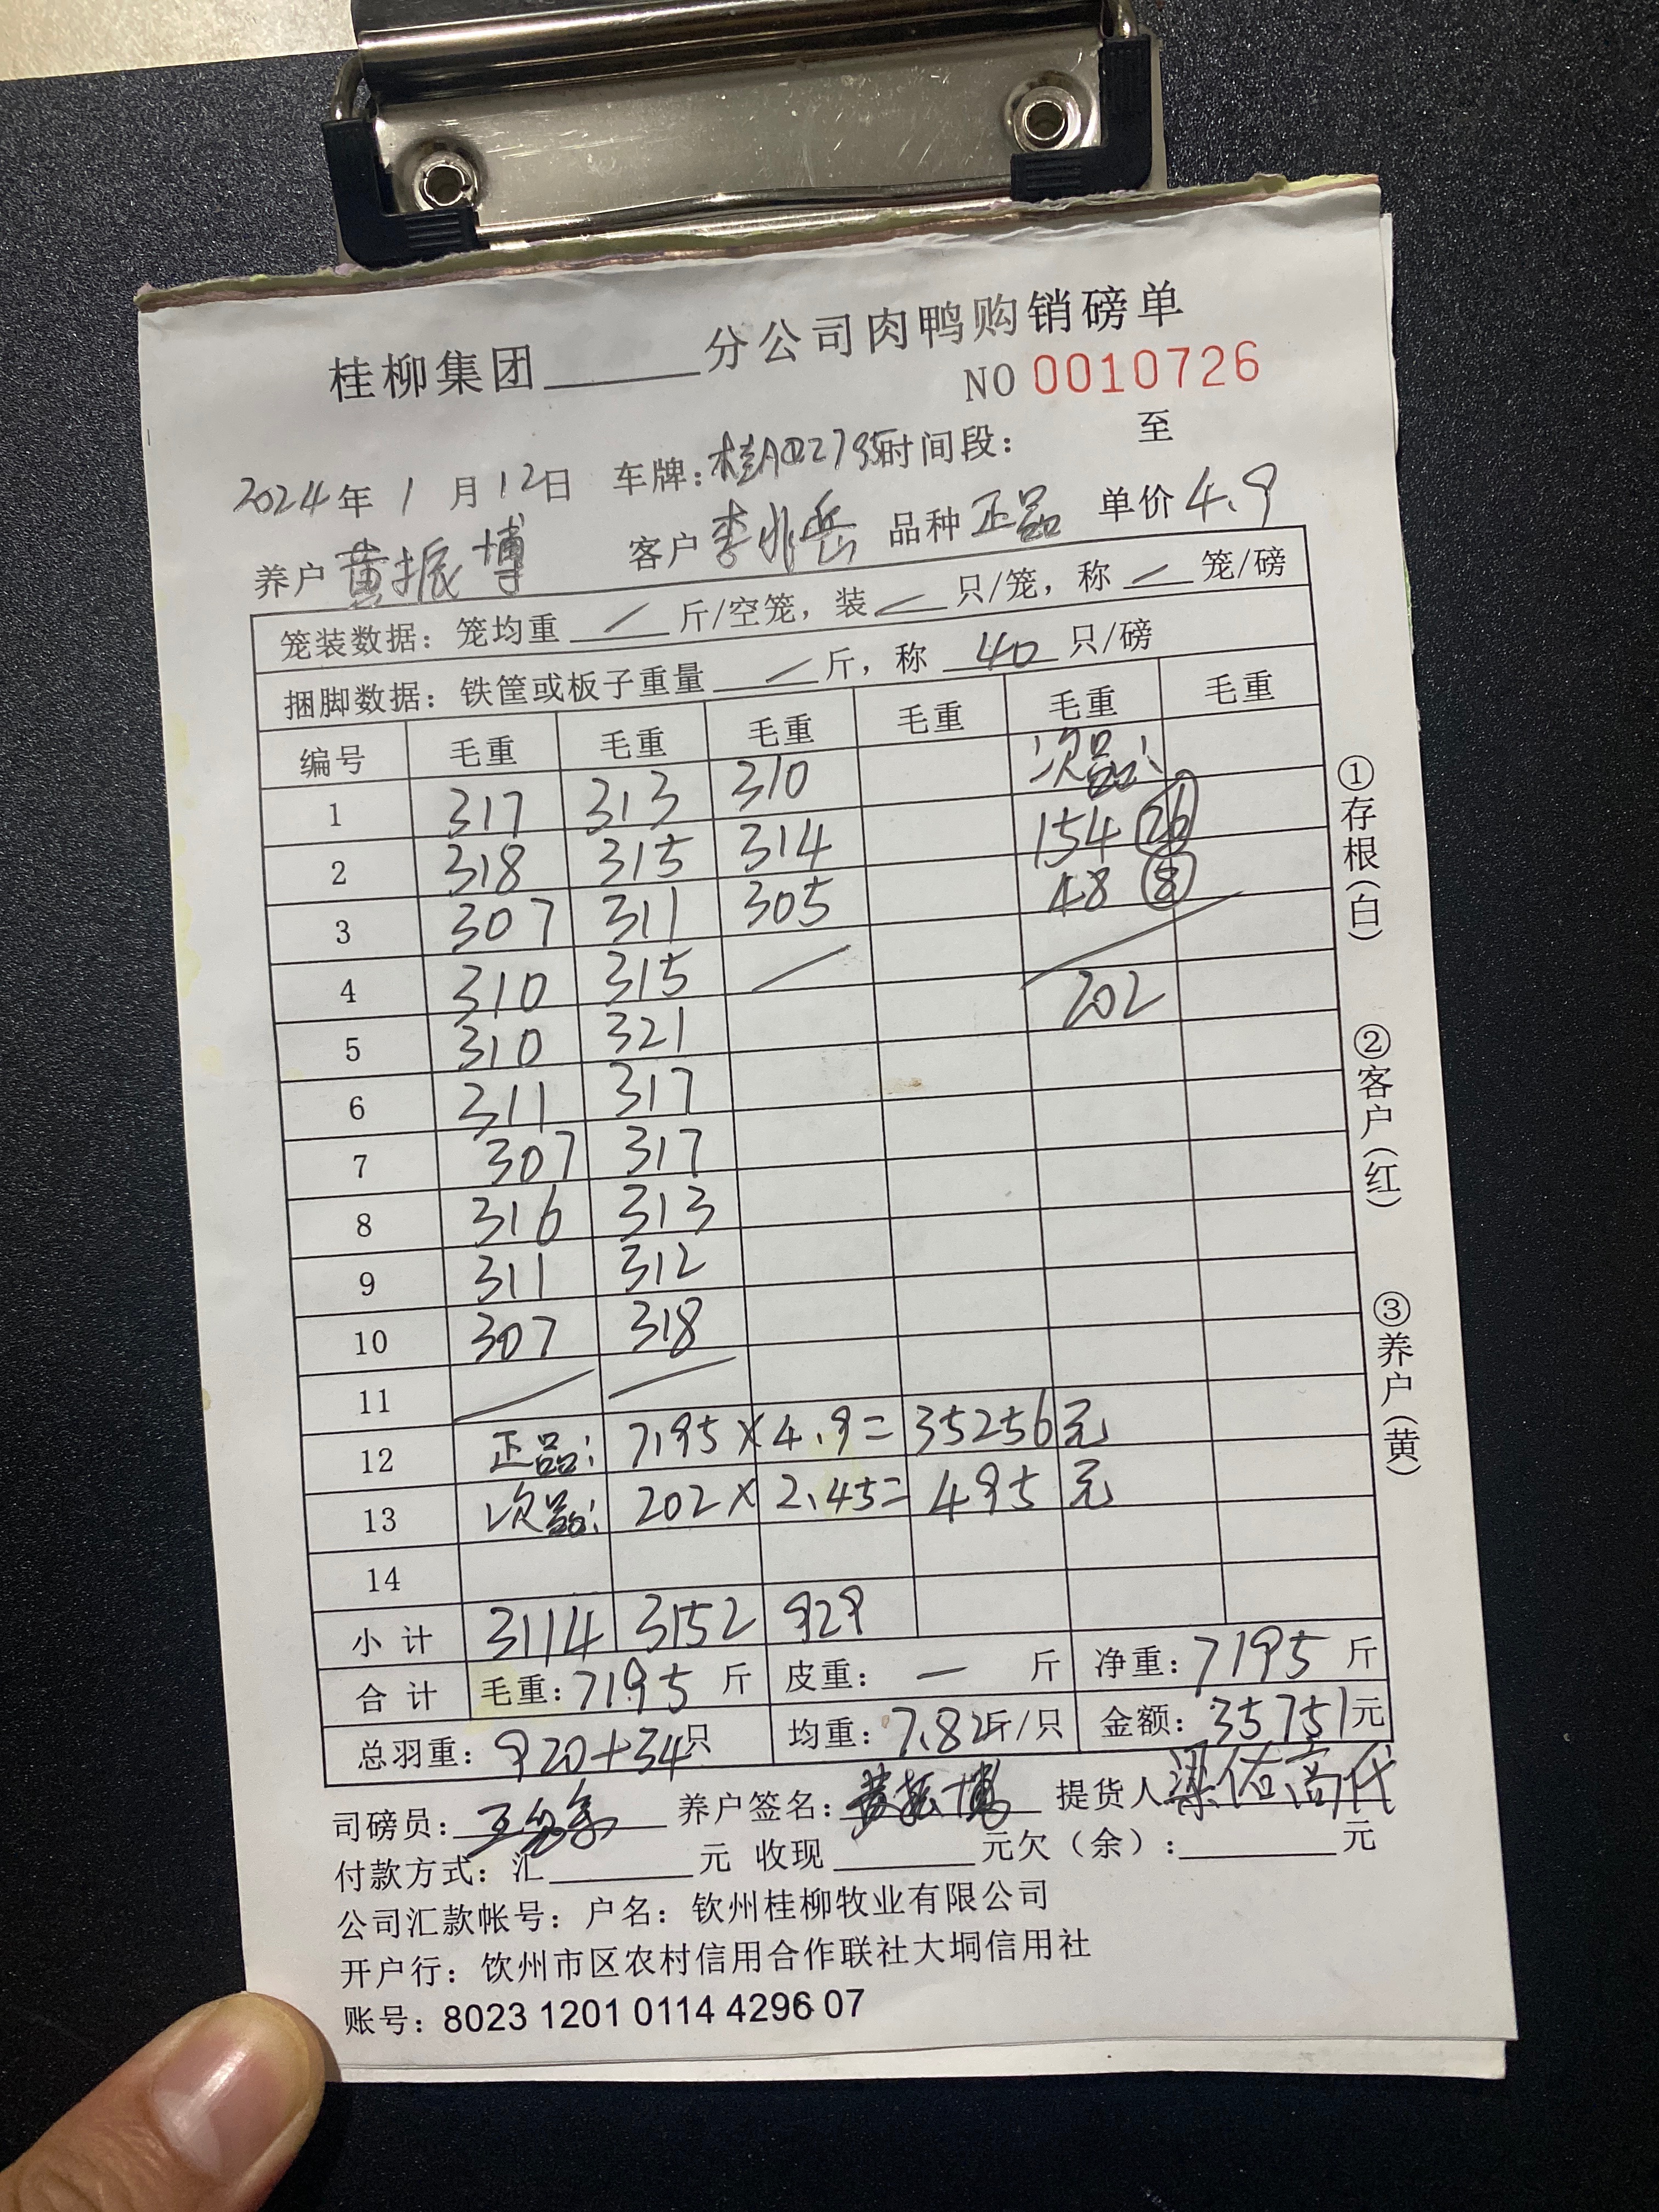 桂柳集团______分公司肉鸭购销磅单
NO 0010726
2024年1月12日 车牌:桂A02795时间段: 至
养户黄振博 客户李兆岳 品种正品 单价4.9
笼装数据: 笼均重 / 斤/空笼, 装 / 只/笼, 称 / 笼/磅
捆脚数据: 铁筐或板子重量 / 斤, 称 40 只/磅
编号 毛重 毛重 毛重 毛重 毛重 毛重
1 317 313 310 次品:
2 318 315 314 154 26
3 307 311 305 48 8
4 310 315 /
5 310 321 202
6 311 317
7 307 317
8 316 313
9 311 312
10 307 318
11 / /
12 正品: 7195×4.9=35256元
13 次品: 202×2.45=495元
14
小计 3114 3152 929
合计 毛重:7195斤 皮重: — 斤 净重:7195斤
总羽重: 920+34只 均重:7.82斤/只 金额:35751元
司磅员: 养户签名:黄振博 提货人梁佑高代
付款方式: 汇______元 收现______元欠(余):______元
公司汇款帐号: 户名: 钦州桂柳牧业有限公司
开户行: 钦州市区农村信用合作联社大垌信用社
账号: 8023 1201 0114 4296 07
①存根(白)
②客户(红)
③养户(黄)